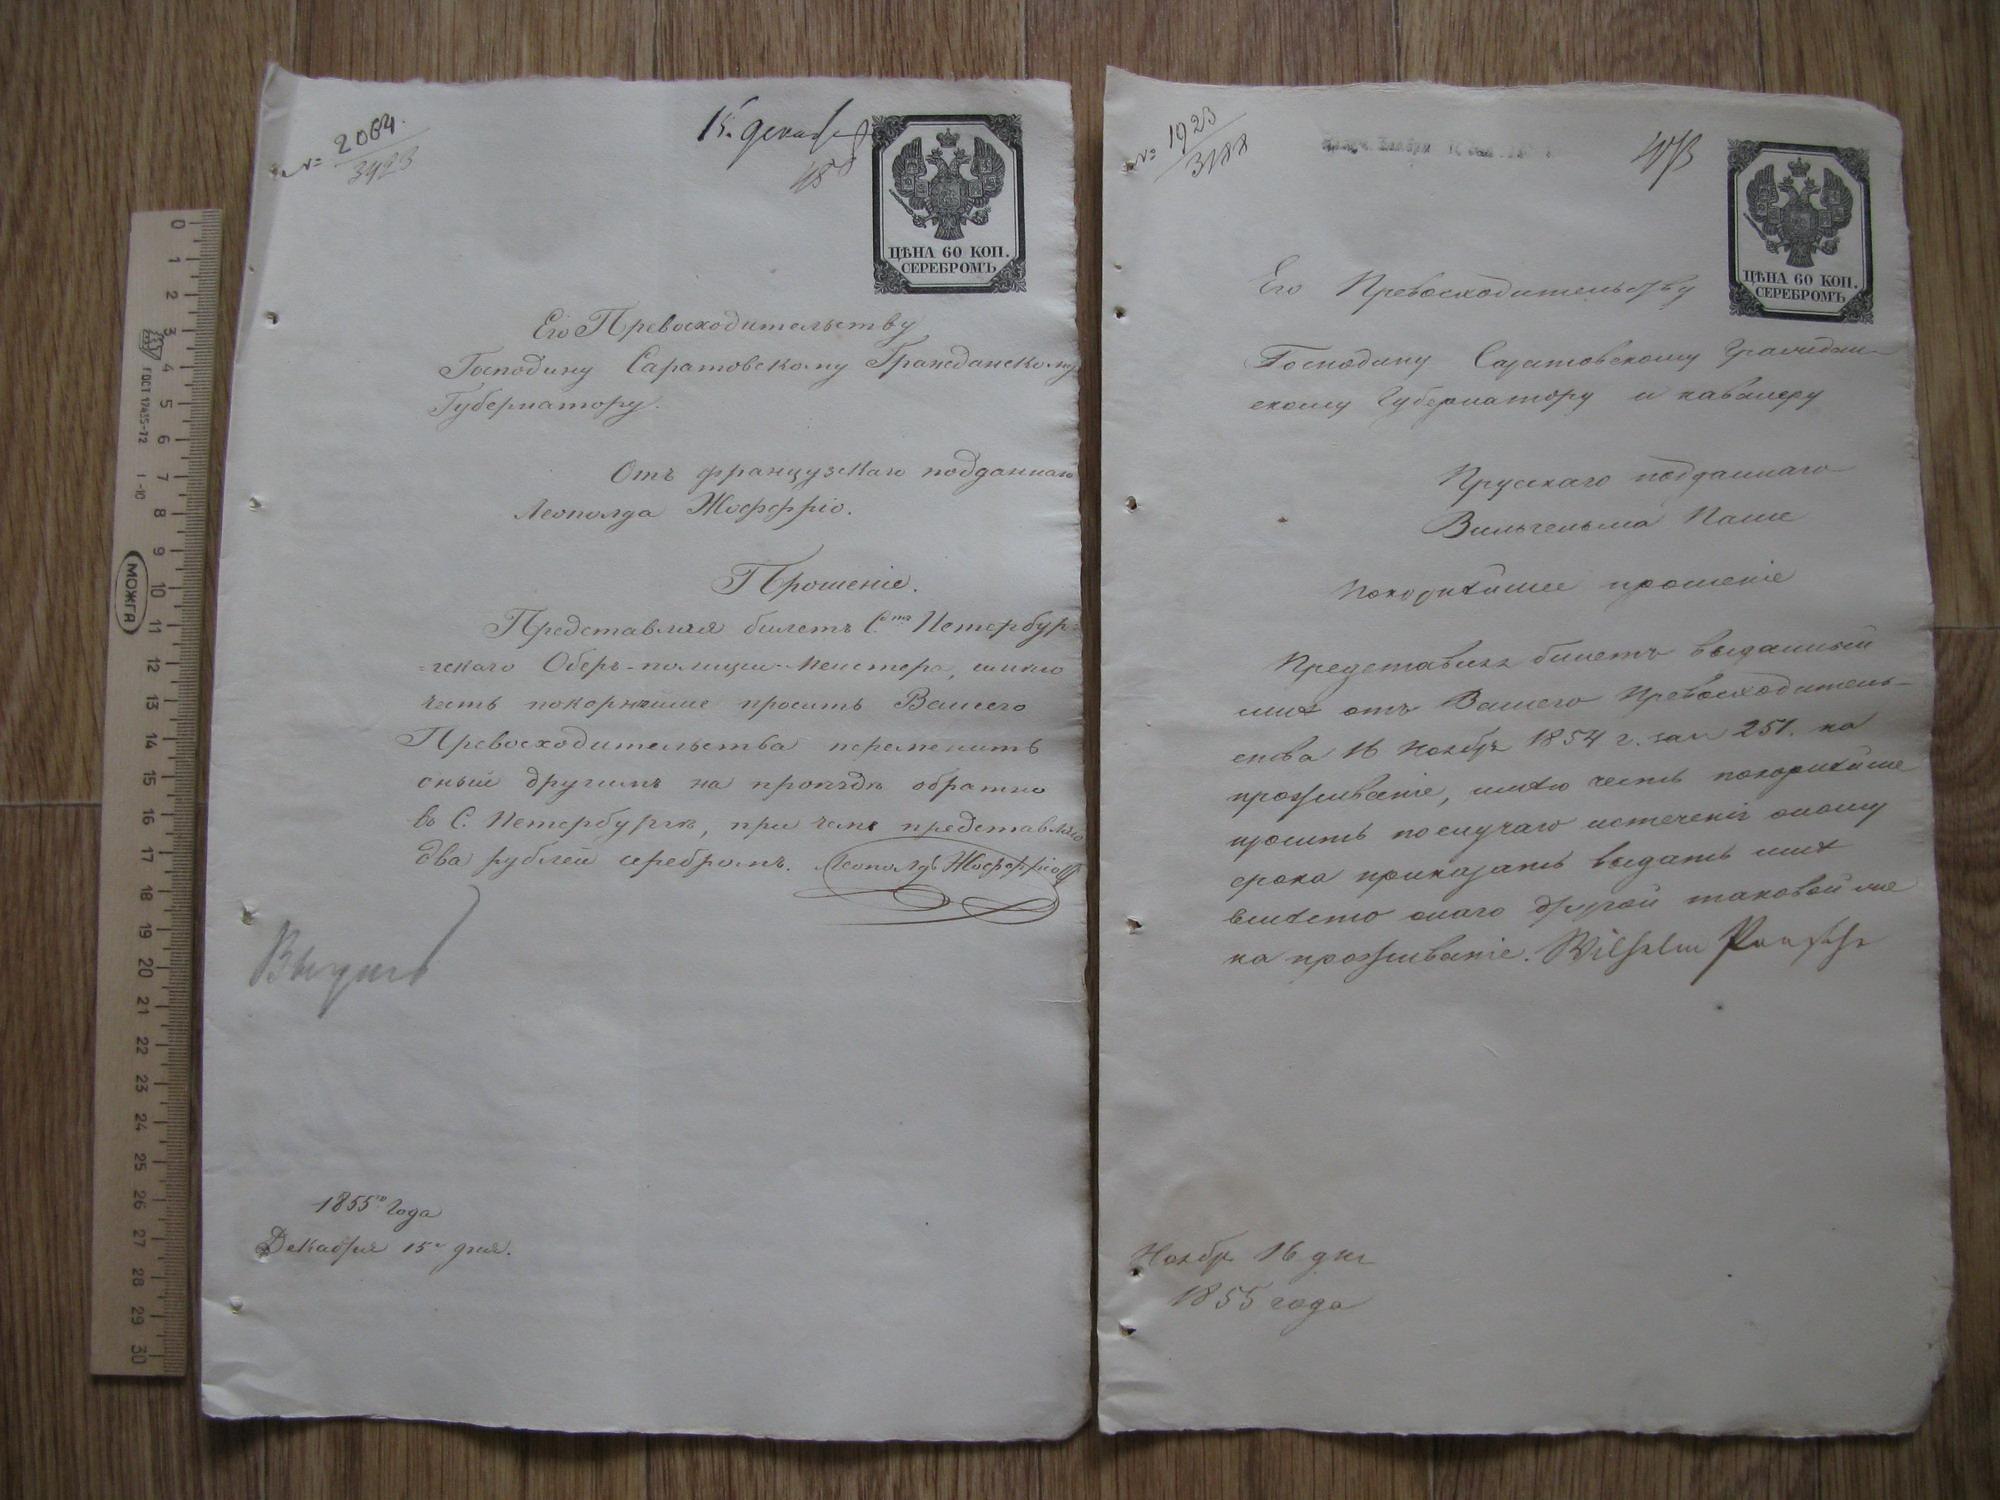 № 2064.
3423
15. декабря
488
ЦѢНА 60 КОП.
СЕРЕБРОМЪ
Его Превосходительству
Господину Саратовскому Гражданскому
Губернатору.
Отъ французскаго подданнаго
Леополда Жоффріо.
Прошеніе.
Представляя билетъ С.тъ Петербур=
=гскаго Оберъ-полицеи-меистера, имѣю
честь покорнѣише просить Вашего
Превосходительства переменить
оный другимъ на проѣздъ обратно
въ С. Петербургъ, при чемъ представляю
два рублей серебромъ. Леополдъ Жоффріо
Выдать
1855го Года
Декабря 15го дня.
№ 1923
3188
473
ЦѢНА 60 КОП.
СЕРЕБРОМЪ
Его Превосходительству
Господину Саратовскому Граждан-
скому Губернатору и кавалеру
Прускаго подданнаго
Вильгельма Панше
Покорнѣйшее прошеніе
Представляя билетъ выданный
мнѣ отъ Вашего Превосходитель-
ства 16 Ноября 1854 г. за № 251. на
проживаніе, имѣю честь покорнѣйше
просить по случаю истеченія оному
срока приказать выдать мнѣ
вмѣсто онаго другой таковой же
на проживаніе. Wilhelm
Ноября 16 дня
1855 года
0
1
2
3
4
5
6
7
8
9
10
11
12
13
14
15
16
17
18
19
20
21
22
23
24
25
26
27
28
29
30
ГОСТ 17435-72
МОЖГА